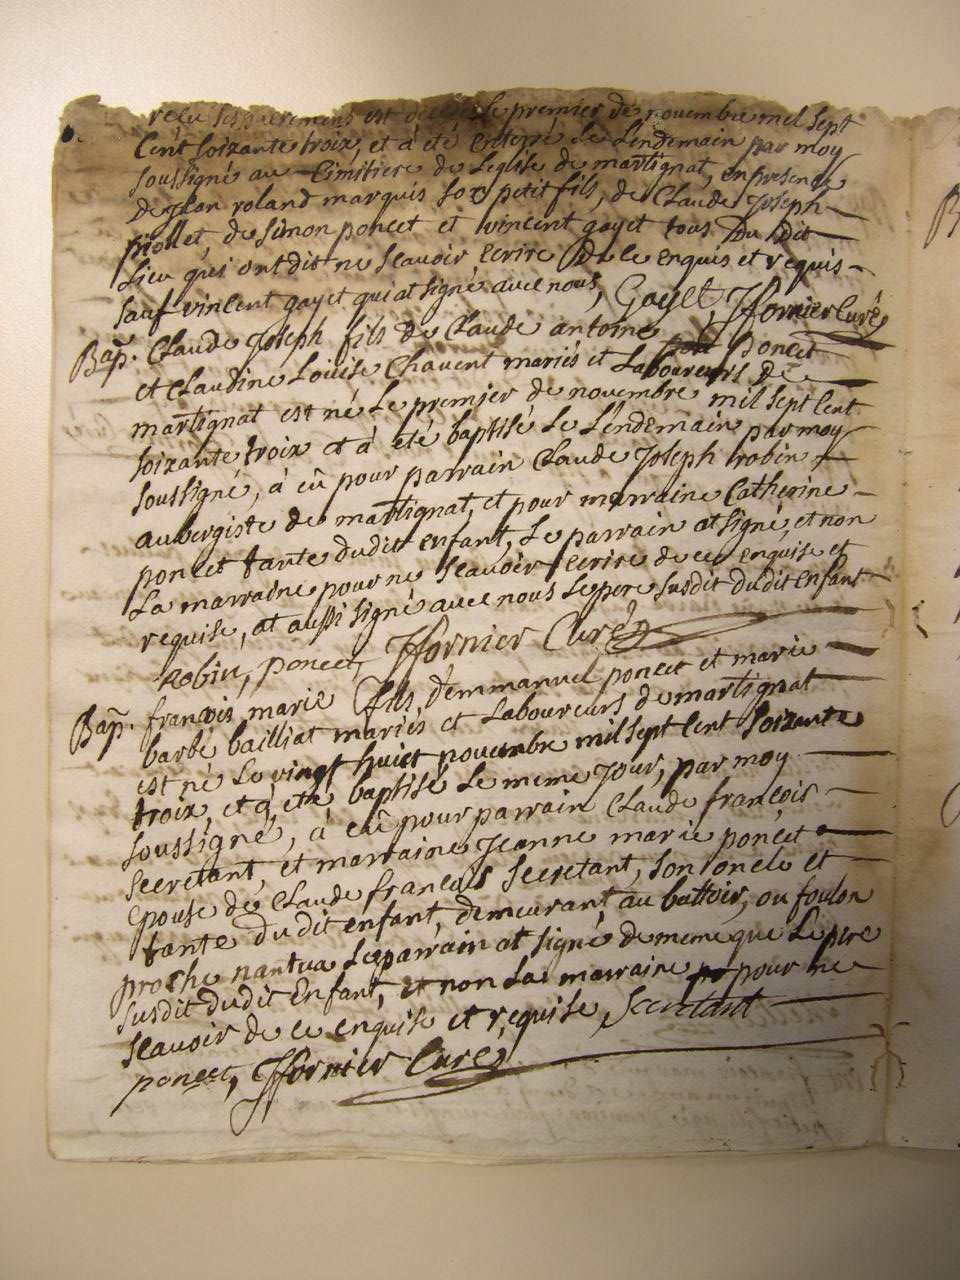 recu ses sacremens est decedé le premier de novembre mil sept
cent soizante troix, et à été enterré le Lendemain par moy
soussigné au Cimitiere de Leglise de martignat, en presence
de jean roland marquis son petit fils, de Claude Joseph
piollet, de simon poncet et vincent gayet tous du dit
Lieu qui ont dit ne scavoir ecrire de ce enquis et requis
sauf vincent gayet qui at signé avec nous, Gayet, ffornier Curé
Bap. Claude Joseph fils de Claude antoine poncet
et Claudine Louise Chavent mariés et Laboureurs de
martignat est né Le premier de novembre mil sept cent
soizante troix et à eté baptisé Le Lendemain par moy
soussigné, à eû pour parrain Claude Joseph robin
aubergiste de martignat, et pour marraine Catherine
poncet tante dudit enfant, Le parrain at signé, et non
La marraine pour ne scavoir ecrire de ce enquise et
requise, at aussi signé avec nous Le pere susdit dudit enfant
Robin, poncet, ffornier Curé
Bap. francois marie fils d'emmanuel poncet et marie
barbe bailliat mariés et Laboureurs de martignat
est né Le vingt huict novembre mil sept cent soizante
troix, et à eté baptisé Le meme jour, par moy
soussigné, à eû pour parrain Claude francois
secretant, et marraine Jeanne marie poncet
epouse de Claude francois secretant, son oncle et
tante dudit enfant, demeurant au battoir, ou foulon
proche nantua Le parrain at signé de meme que Le pere
susdit dudit Enfant, et non La marraine pour ne
scavoir de ce enquise et requise, Secretant
poncet, ffornier Curé